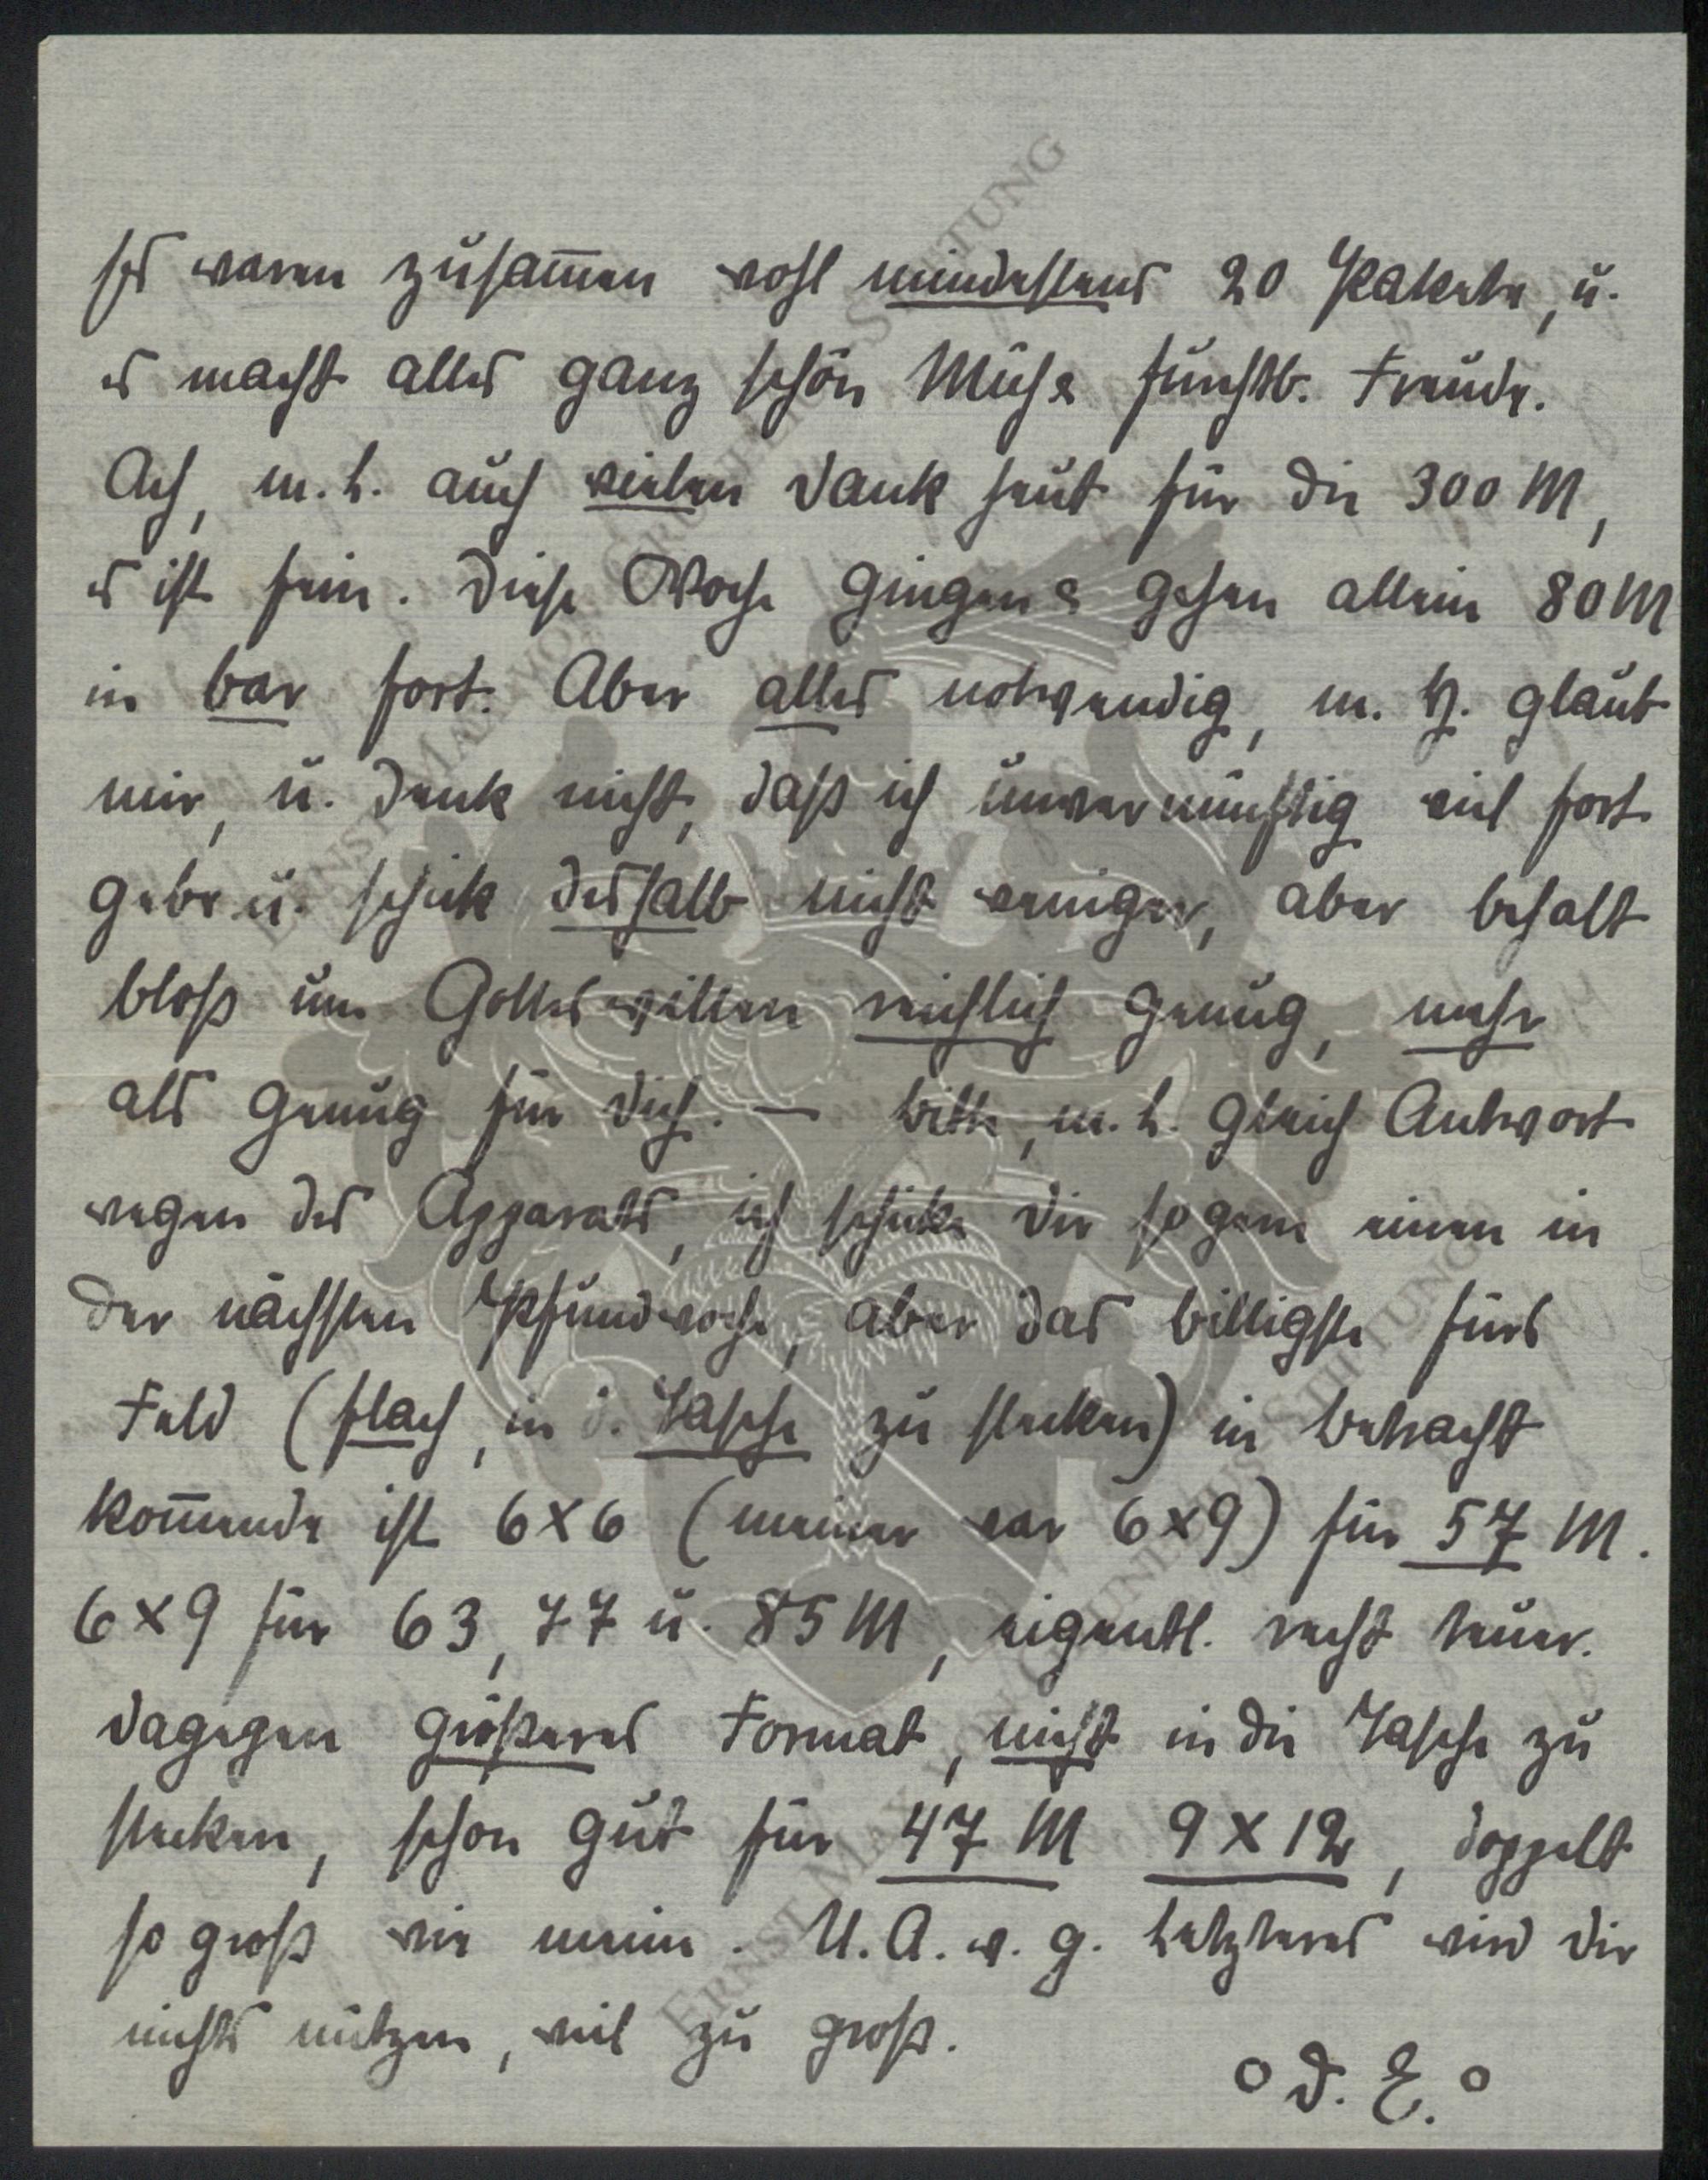 Es waren zusam̅en wohl mindestens 20 Pakete, u.
es macht alles ganz schön Müh & furchtb. Freude.
Ach, m. L. auch vielen Dank heut für die 300 M,
es ist fein. Diese Woche gingen & gehen allein 80 M
in bar fort. Aber alles notwendig, m. H. glaub
mir, u. denk nicht, daß ich unvernünftig viel fort
gebe u. schick deshalb nicht weniger, aber behalt
bloß um Gottes willen reichlich genug, mehr
als genug für Dich. — Bitte, m. L. gleich Antwort
wegen des Apparats, ich schicke Dir so gern einen in
der nächsten Pfundwoche, aber das billigste fürs
Feld (flach, in d. Tasche zu stecken) in Betracht
kom̅ende ist 6x6 (meiner war 6x9) für 57 M.
6x9 für 63, 77 u. 85 M, eigentl. recht teuer.
Dagegen größeres Format, nicht in die Tasche zu
stecken, schon gut für 47 M 9x12, doppelt
so groß wie meine. U. A. w. g. Letzteres wird Dir
nichts nützen, weil zu groß.
° D. E. °
ERNST MAX VON GRUNELIUS-STIFTUNG
ERNST MAX VON GRUNELIUS-STIFTUNG